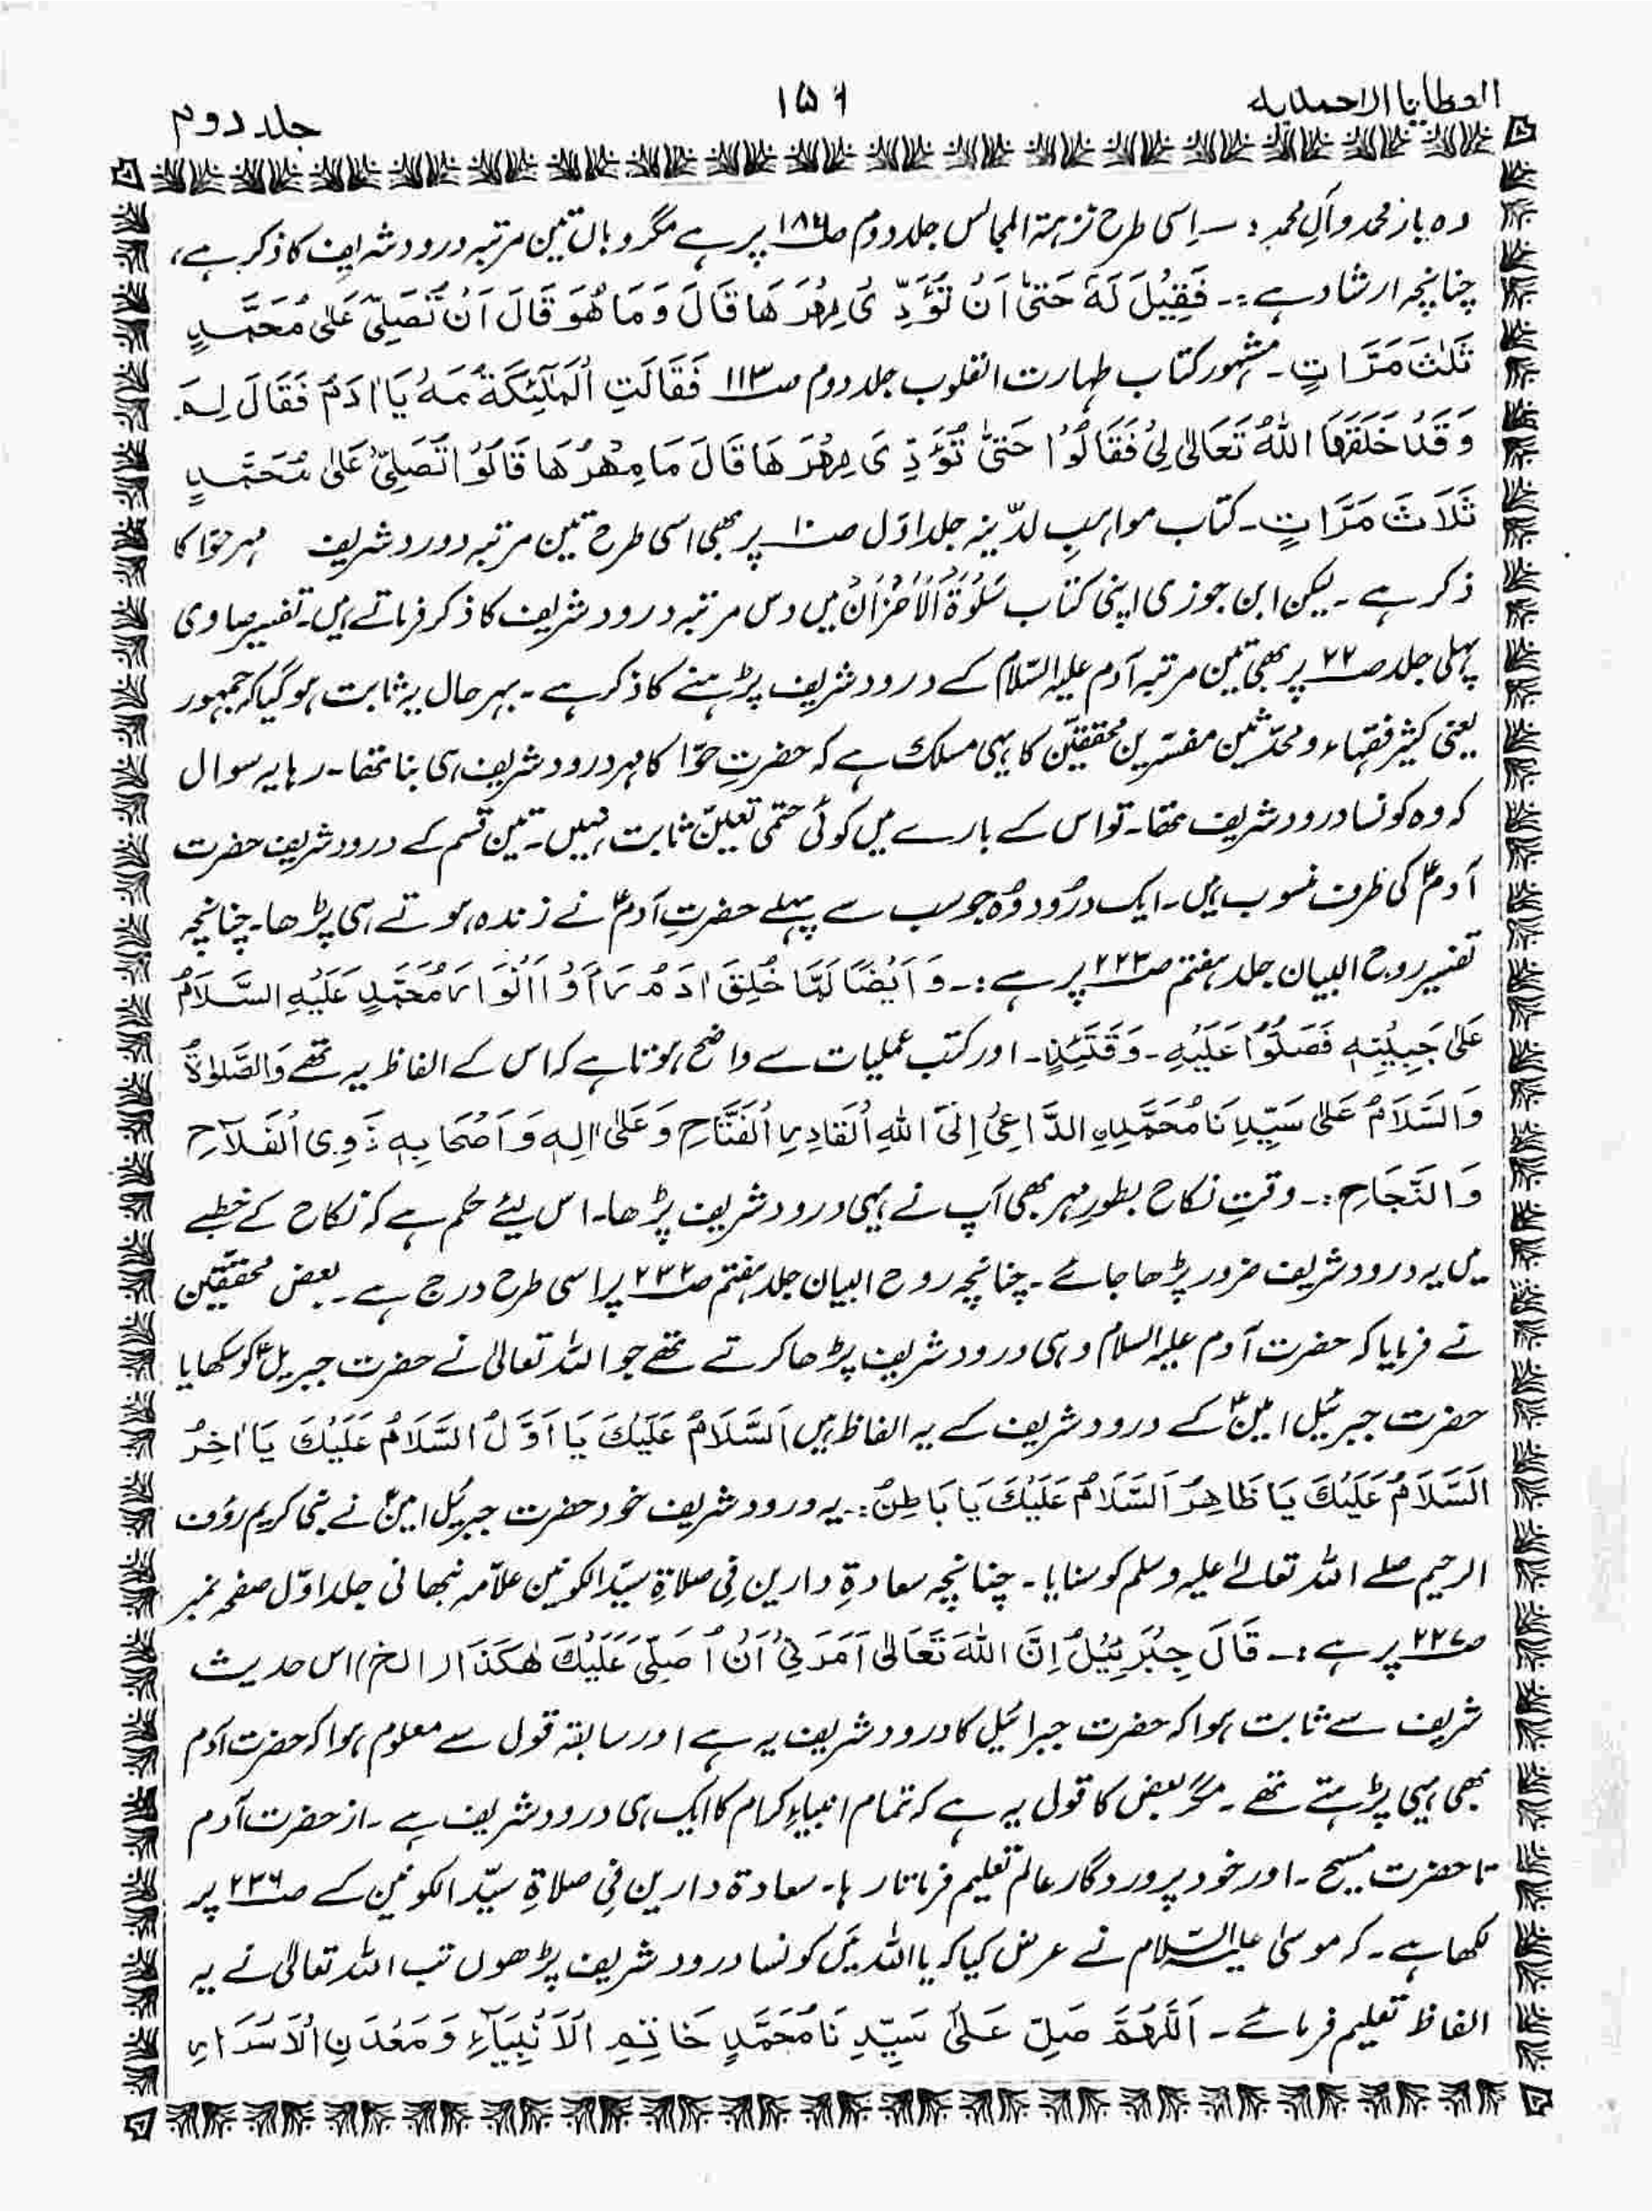 العطایا الاحمدیه
۱۵۶
جلد دوم
دہ باز محمد و آلِ محمد :۔ اِسی طرح نزہتہ المجالس جلد دوم صـ پر ہے مگر وہاں تین مرتبہ درود شریف کا ذکر ہے،
چنانچہ ارشاد ہے :۔ فَقِيْلَ لَهٗ حَتّٰى اَنْ تُؤَدِّىَ مِهْرَهَا قَالَ وَمَا هُوَ قَالَ اَنْ تُصَلِّىَ عَلٰى مُحَمَّدٍ
ثَلٰثَ مَرَّاتٍ۔ مشہور کتاب طہارت القلوب جلد دوم صـ۱۱۳ فَقَالَتِ الْمَلٰٓئِكَةُ مَهْ يَا اٰدَمُ فَقَالَ لِمَ
وَقَدْ خَلَقَهَا اللّٰهُ تَعَالٰى لِىْ فَقَالُوْا حَتّٰى تُؤَدِّىَ مِهْرَهَا قَالَ مَا مِهْرُهَا قَالُوْا تُصَلِّىْ عَلٰى مُحَمَّدٍ
ثَلَاثَ مَرَّاتٍ۔ کتاب مواہبِ لدّنیہ جلد اوّل صـ۱۰ پر بھی اسی طرح تین مرتبہ دورد شریف مہر حوّا کا
ذکر ہے ۔ لیکن ابن جوزی اپنی کتاب سَلْوَۃُ الْاَحْزَانْ میں دس مرتبہ درود شریف کا ذکر فرماتے ہیں۔ تفسیر صاوی
پہلی جلد صـ۲۲ پر بھی تین مرتبہ آدم علیہ السّلام کے درود شریف پڑہنے کا ذکر ہے ۔ بہر حال یہ ثابت ہو گیا کہ جمہور
یعنی کثیر فقہاء و محدّثین مفسّرین محققّین کا یہی مسلک ہے کہ حضرتِ حوّا کا مہر درود شریف ہی بنا تھا۔ رہا یہ سوال
کہ وہ کونسا درود شریف تھا۔ تو اس کے بارے میں کوئی حتمی تعیّن ثابت نہیں۔ تین قسم کے درود شریف حضرت
آدمؑ کی طرف منسوب ہیں۔ ایک درُود وُہ جو سب سے پہلے حضرتِ آدمؑ نے زندہ ہوتے ہی پڑھا۔ چنانچہ
تفسیر روح البیان جلد ہفتم صـ۲۲۳ پر ہے :۔ وَ اَيْضًا لَمَّا خُلِقَ اٰدَمُ رَأَوْا اَنْوَارَ مُحَمَّدٍ عَلَيْهِ السَّلَامُ
عَلٰى جَبِيْنِهٖ فَصَلُّوْا عَلَيْهِ ۔ وَقْتَئِذٍ ۔ اور کتب عملیات سے واضح ہوتا ہے کہ اس کے الفاظ یہ تھے وَالصَّلوٰةُ
وَالسَّلَامُ عَلٰى سَيِّدِنَا مُحَمَّدِنِ الدَّاعِىْ اِلَى اللّٰهِ الْقَادِرِ الْفَتَّاحِ وَعَلٰى اٰلِهٖ وَاَصْحَابِهٖ ذَوِى الْفَلَاحِ
وَالنَّجَاحِ :۔ وقتِ نکاح بطورِ مہر بھی آپ نے یہی درود شریف پڑھا۔ اس لیئے حُکم ہے کہ نکاح کے خطبے
میں یہ درود شریف ضرور پڑھا جائے ۔ چنانچہ روح البیان جلد ہفتم صـ۲۳۲ پر اسی طرح درج ہے۔ بعض محققّین
نے فرمایا کہ حضرت آدم علیہ السلام وہی درود شریف پڑھا کرتے تھے جو اللہ تعالیٰ نے حضرت جبریلؑ کو سکھایا
حضرت جبرئیل امینؑ کے درود شریف کے یہ الفاظ ہیں اَلسَّلَامُ عَلَيْكَ يَا اَوَّلُ السَّلَامُ عَلَيْكَ يَا اٰخِرُ
اَلسَّلَامُ عَلَيْكَ يَا ظَاهِرُ اَلسَّلَامُ عَلَيْكَ يَا بَاطِنُ :۔ یہ درود شریف خود حضرت جبرئیل امینؑ نے نبی کریم رؤف
الرحیم صلے اللہ تعالےٰ علیہ وسلم کو سنایا ۔ چنانچہ سعادۃِ دارین فِی صلاۃِ سیّد الکونین علاّمہ نبھانی جلد اوّل صفحہ نمبر
صـ۲۲۷ پر ہے :۔ قَالَ جِبْرَئِيْلُ اِنَّ اللّٰهَ تَعَالٰى اَمَرَنِىْ اَنْ اُصَلِّىَ عَلَيْكَ هٰكَذَا (الخ) اس حدیث
شریف سے ثابت ہوا کہ حضرت جبرائیل کا درود شریف یہ ہے اور سابقہ قول سے معلوم ہوا کہ حضرت آدم
بھی یہی پڑہتے تھے ۔ مگر بعض کا قول یہ ہے کہ تمام انبیاءِ کرام کا ایک ہی درود شریف ہے ۔ از حضرت آدم
تا حضرت مسیح ۔ اور خود پروردگار عالم تعلیم فرماتا رہا۔ سعادۃ دارین فِی صلاۃِ سیّد الکونین کے صـ۲۳۶ پر
لکھا ہے ۔ کہ موسیٰ علیہ السّلام نے عرض کیا کہ یا اللہ میں کونسا درود شریف پڑھوں تب اللہ تعالیٰ نے یہ
الفاظ تعلیم فرمائے ۔ اَللّٰهُمَّ صَلِّ عَلٰى سَيِّدِنَا مُحَمَّدٍ خَاتِمِ الْاَنْبِيَآءِ وَمَعْدَنِ الْاَسْرَارِ